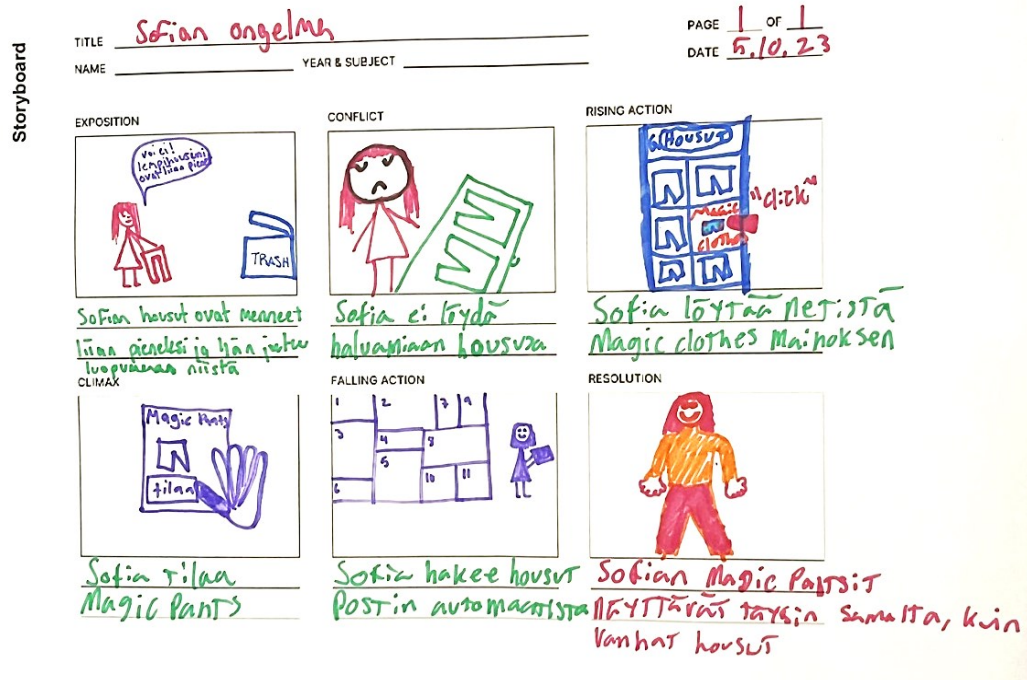 Storyboard
TITLE Sofian ongelma
PAGE 1 OF 1
DATE 5.10.23
NAME
YEAR & SUBJECT
EXPOSITION
voi ei!
lempihousuni
ovat liian pienet
TRASH
Sofian housut ovat menneet
liian pieneksi ja hän joutuu
luopumaan niistä
CONFLICT
Sofia ei löydä
haluamiaan housuja
RISING ACTION
HOUSUT
Magic
clothes
"click"
Sofia löytää netistä
Magic clothes Mainoksen
CLIMAX
Magic Pants
tilaa
Sofia tilaa
Magic Pants
FALLING ACTION
1 2 7 9
3 4 8
5
6 10 11
Sofia hakee housut
Postin automaatista
RESOLUTION
Sofian Magic Pantsit
näyttävät täysin samalta, kuin
vanhat housut